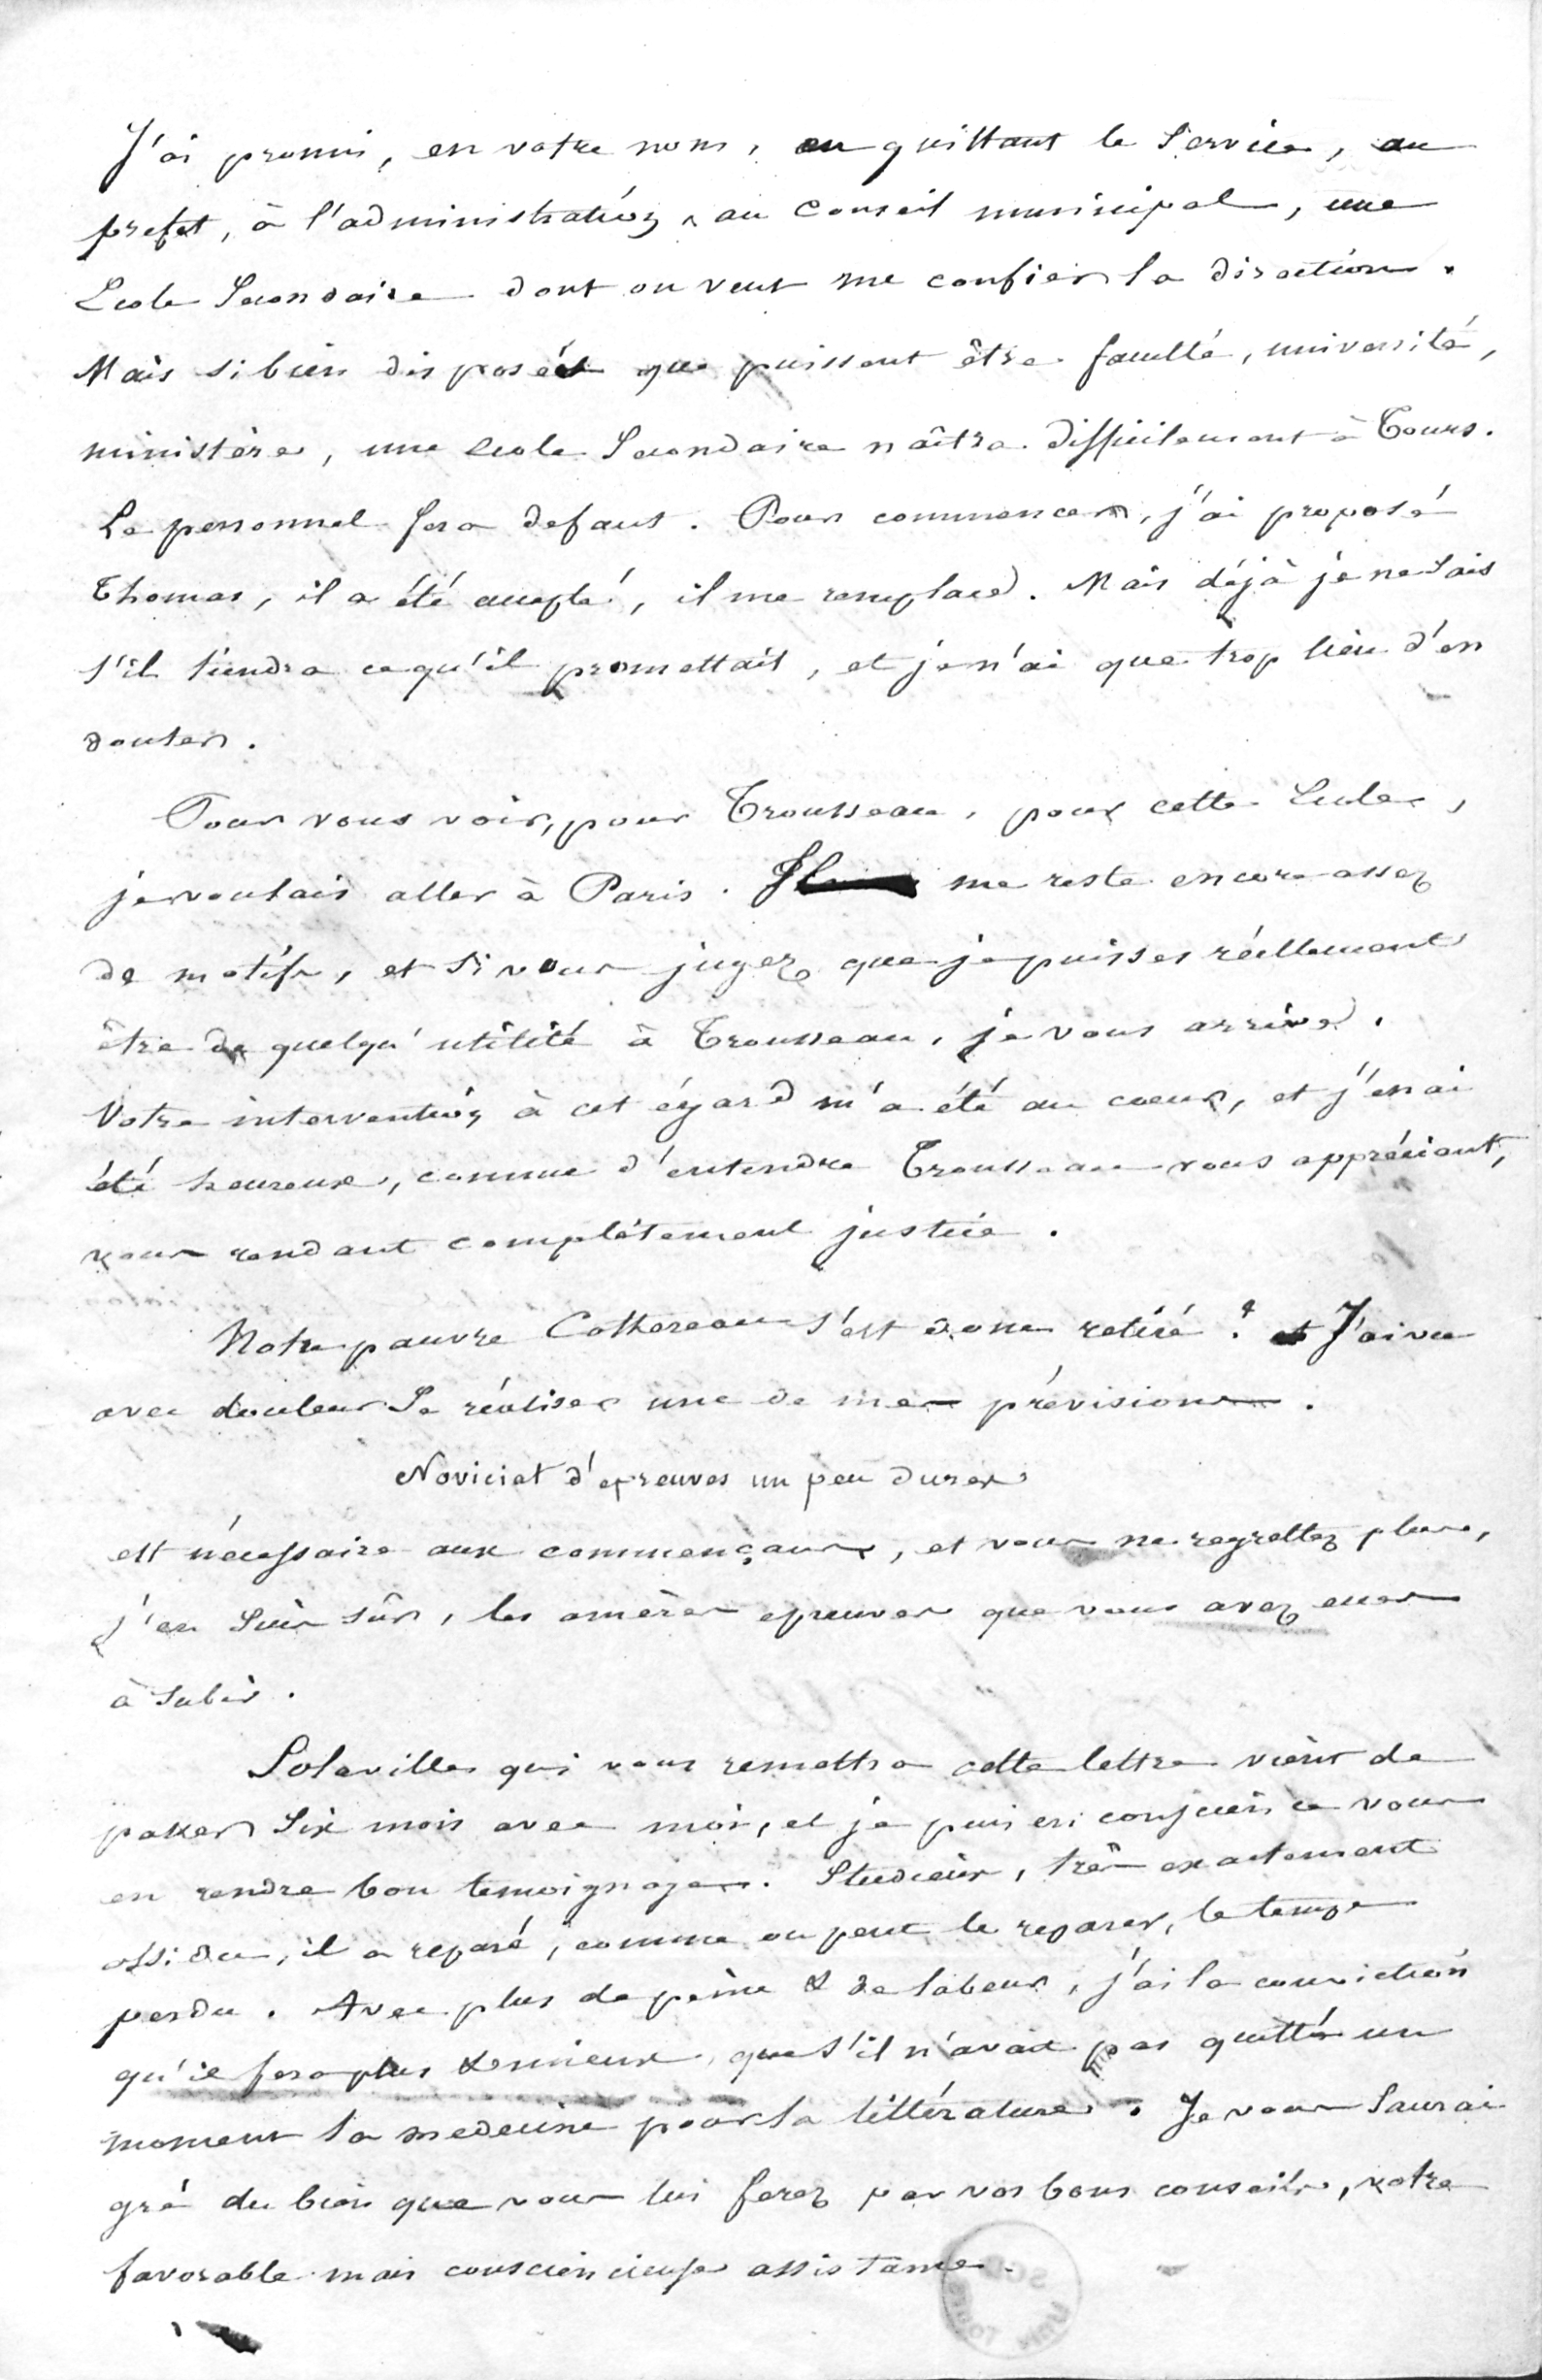 J'ai promis, en votre nom, en quittant le Service, au
prefet, à l'administration, au Conseil municipal, une
Ecole Secondaire dont on veut me confier la direction.
Mais si bien disposés que puissent être faculté, université,
ministère, une ecole Secondaire naîtra difficilement à Tours.
Le personnel fera defaut. Pour commencer, j'ai proposé
Thomas, il a été accepté, il me remplace. Mais déjà je ne sais
s'il tiendra ce qu'il promettait, et je n'ai que trop lieu d'en
douter.
Pour vous voir, pour Trousseau, pour cette Ecole,
je voulais aller à Paris. Il me reste encore assez
de motifs, et si vous jugez que je puisse réellement
être de quelqu'utilité à Trousseau, je vous arrive.
Votre intervention à cet égard m'a été au coeur, et j'en ai
été heureux, comme d'entendre Trousseau vous appréciant,
vous rendant complètement justice.
Notre pauvre Cottereau s'est donc retiré ? J'ai vu
avec douleur Se réaliser une de mes prévisions.
Noviciat d'epreuves un peu dures
est nécessaire aux commençants, et vous ne regrettez plus,
j'en Suis sûr, les amères epreuves que vous avez eues
à subir.
Solaville qui vous remettra cette lettre vient de
passer Six mois avec moi, et je puis en conscience vous
en rendre bon temoignage. Studieux, très exactement
assidu, il a reparé, comme on peut le reparer, le temps
perdu. Avec plus de peine & de labeur, j'ai la conviction
qu'il fera plus & mieux, que s'il n'avait pas quitté un
moment la medecine pour la littérature. Je vous Saurai
gré du bien que vous lui ferez par vos bons conseils, votre
favorable mais consciencieuse assistance.